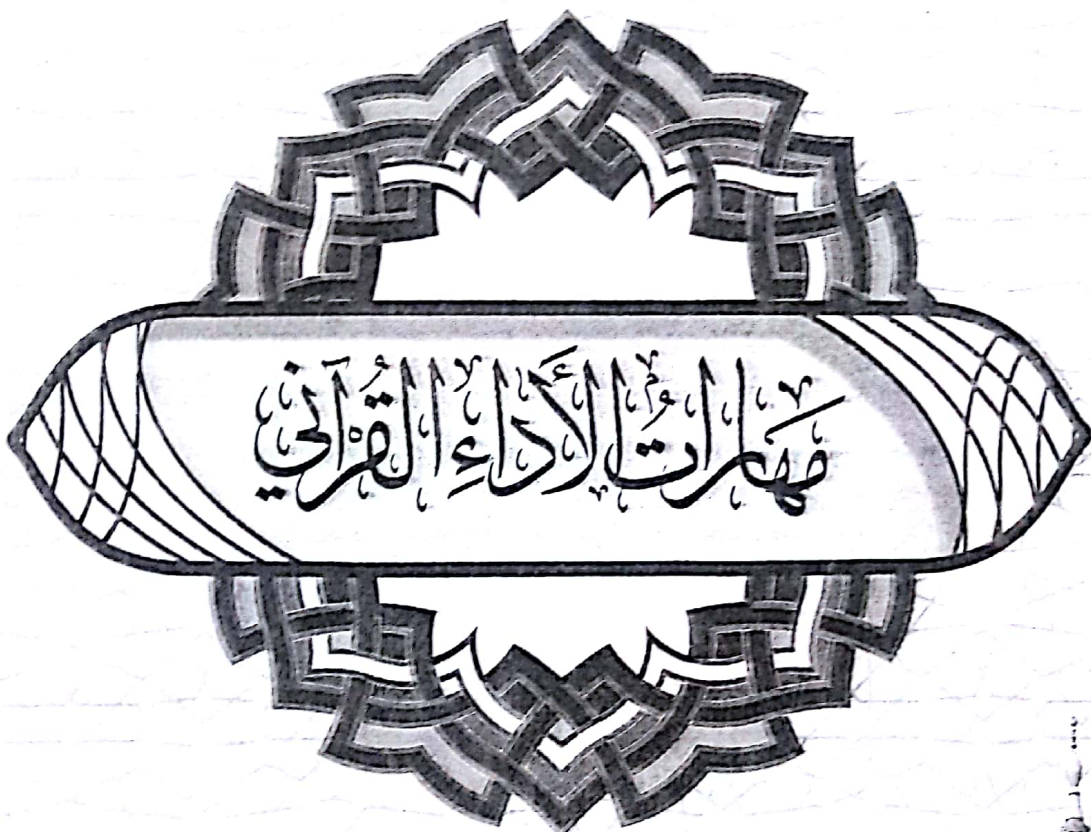 مَهَارَاتُ الأَدَاءِ القُرْآنِي